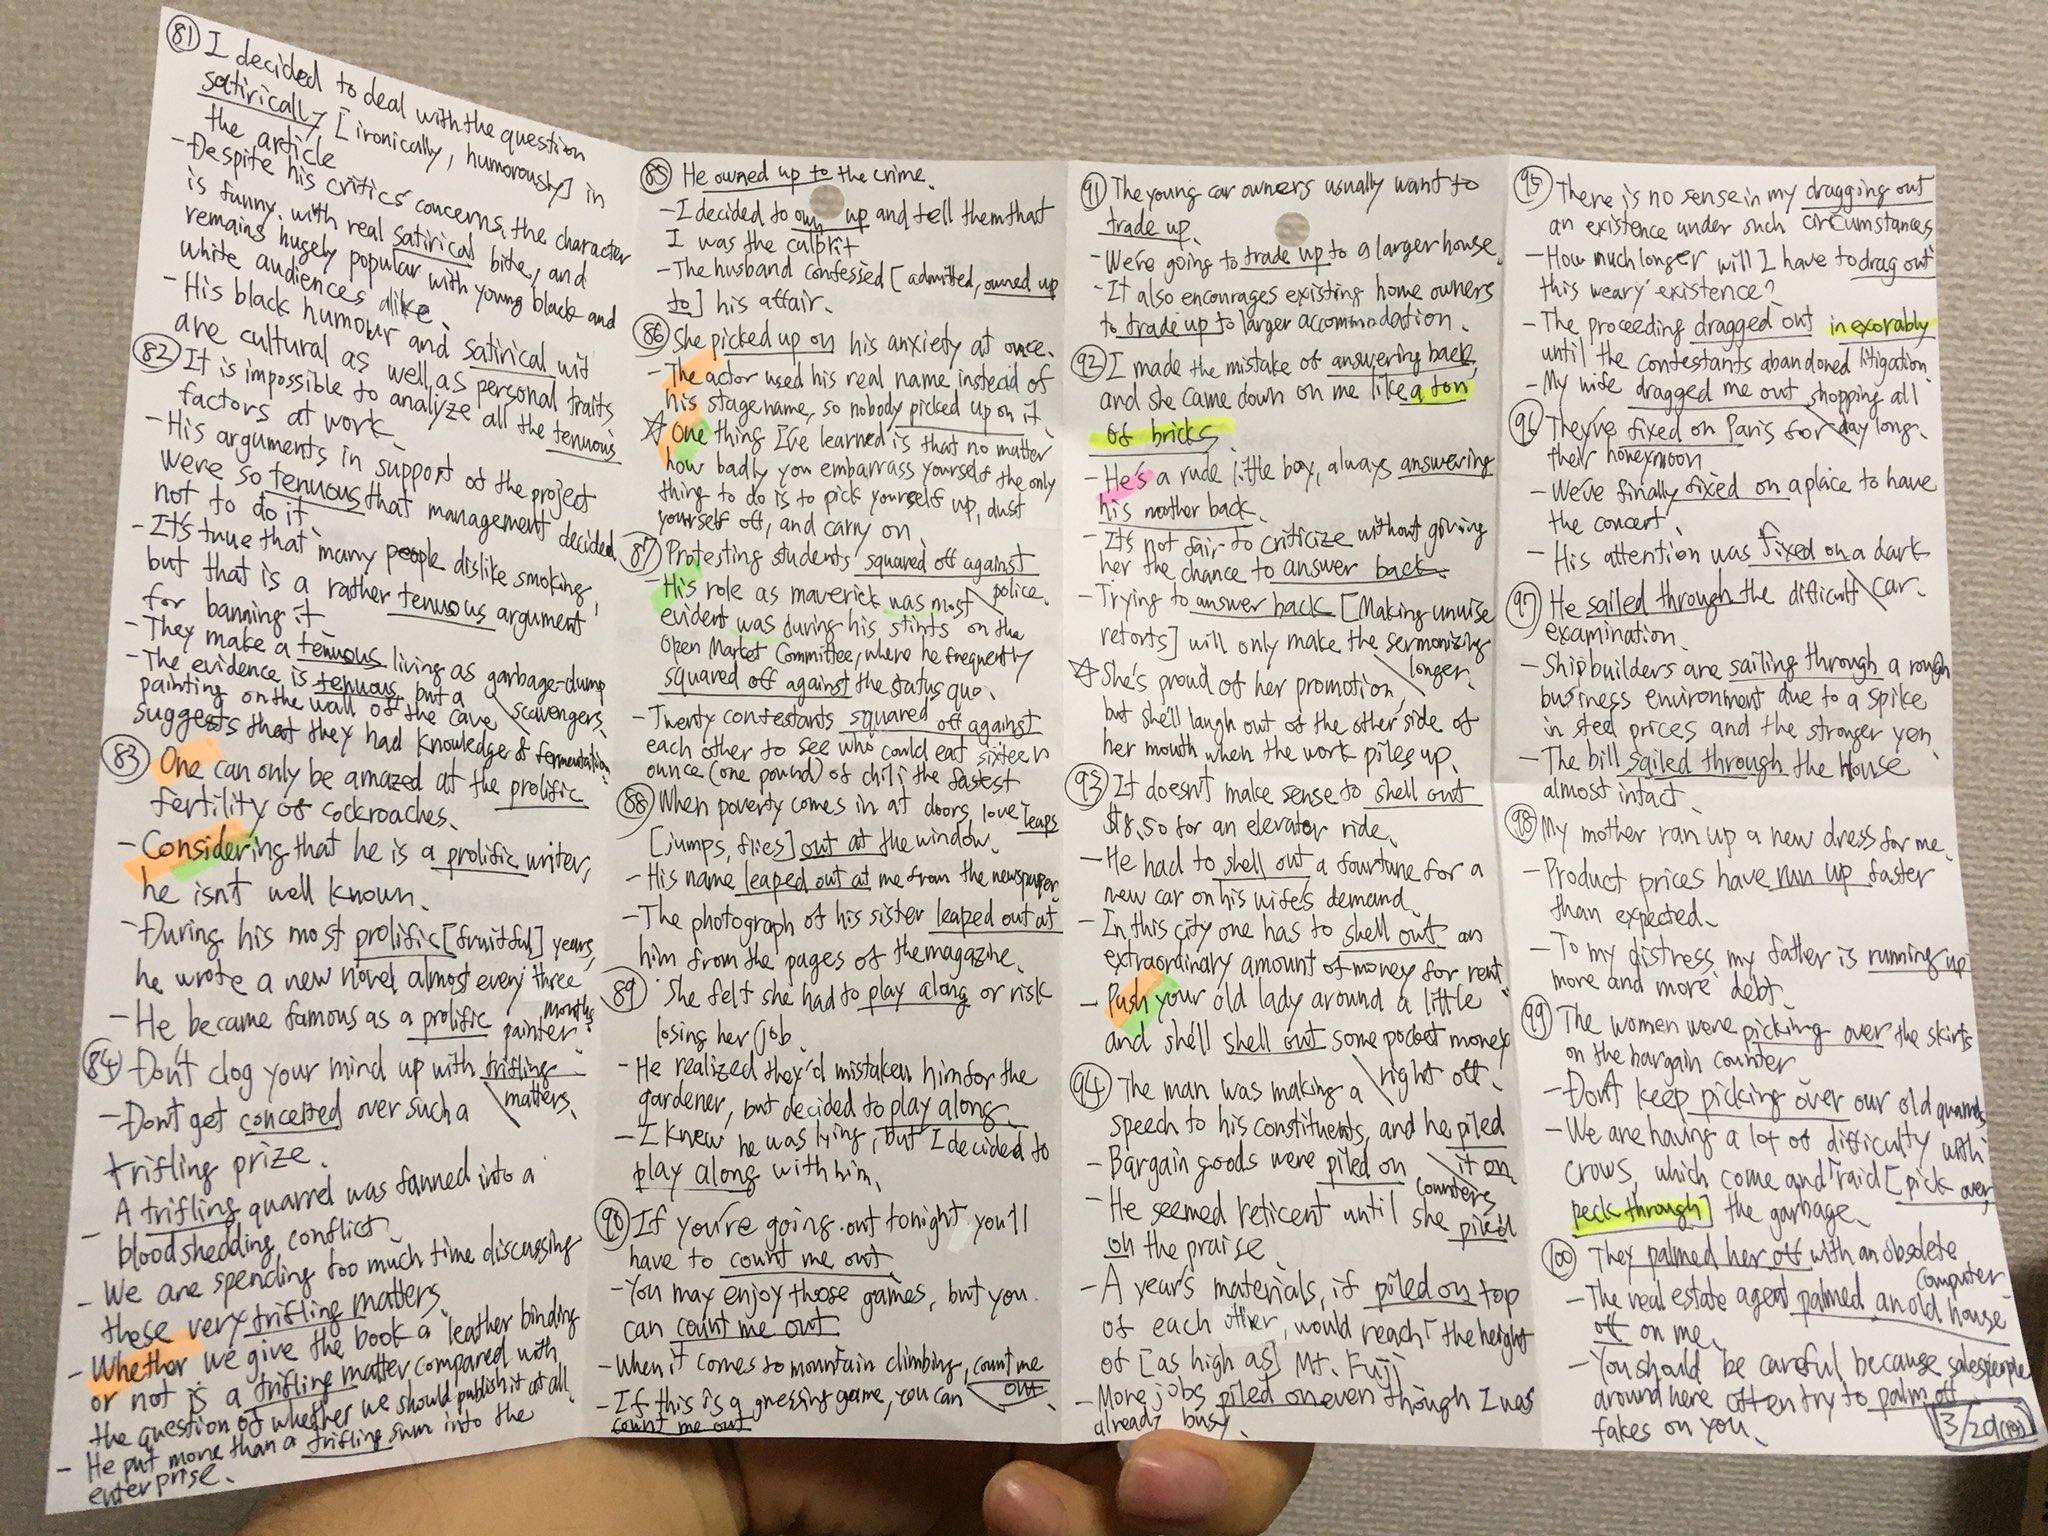 81 I decided to deal with the question
satirically [ironically, humorously] in
the article
- Despite his critics' concerns, the character
is funny, with real satirical bite, and
remains hugely popular with young black and
white audiences alike.
- His black humour and satirical wit
are cultural as well as personal traits.
82 It is impossible to analyze all the tenuous
factors at work.
- His arguments in support of the project
were so tenuous that management decided
not to do it.
- It's true that many people dislike smoking,
but that is a rather tenuous argument
for banning it.
- They make a tenuous living as garbage-dump
scavengers.
- The evidence is tenuous, but a
painting on the wall of the cave
suggests that they had knowledge of fermentation.
83 One can only be amazed at the prolific
fertility of cockroaches.
- Considering that he is a prolific writer,
he isn't well known.
- During his most prolific [fruitful] years,
he wrote a new novel almost every three
months.
- He became famous as a prolific painter.
84 Don't clog your mind up with trifling
matters.
- Don't get conceited over such a
trifling prize.
- A trifling quarrel was fanned into a
bloodshedding conflict.
- We are spending too much time discussing
these very trifling matters.
- Whether we give the book a leather binding
or not is a trifling matter compared with
the question of whether we should publish it at all.
- He put more than a trifling sum into the
enterprise.
85 He owned up to the crime.
- I decided to own up and tell them that
I was the culprit
- The husband confessed [admitted, owned up
to] his affair.
86 She picked up on his anxiety at once.
- The actor used his real name instead of
his stage name, so nobody picked up on it.
☆ One thing I've learned is that no matter
how badly you embarrass yourself the only
thing to do is to pick yourself up, dust
yourself off, and carry on.
87 Protesting students squared off against
police.
- His role as maverick was most
evident was during his stints on the
Open Market Committee, where he frequently
squared off against the status quo.
- Twenty contestants squared off against
each other to see who could eat sixteen
ounce (one pound) of chili the fastest
88 When poverty comes in at doors, love leaps
[jumps, flies] out at the window.
- His name leaped out at me from the newspaper.
- The photograph of his sister leaped out at
him from the pages of the magazine.
89 She felt she had to play along or risk
losing her job.
- He realized they'd mistaken him for the
gardener, but decided to play along.
- I knew he was lying, but I decided to
play along with him.
90 If you're going out tonight you'll
have to count me out.
- You may enjoy those games, but you
can count me out
- When it comes to mountain climbing, count me
out.
- If this is a guessing game, you can
count me out
91 The young car owners usually want to
trade up.
- We're going to trade up to a larger house.
- It also encourages existing home owners
to trade up to larger accommodation.
92 I made the mistake of answering back,
and she came down on me like a ton
of bricks.
- He's a rude little boy, always answering
his mother back.
- It's not fair to criticize without giving
her the chance to answer back.
- Trying to answer back [Making unwise
retorts] will only make the sermonizing
longer.
☆ She's proud of her promotion,
but she'll laugh out of the other side of
her mouth when the work piles up.
93 It doesn't make sense to shell out
$8,50 for an elevator ride.
- He had to shell out a fourtune for a
new car on his wife's demand.
- In this city one has to shell out an
extraordinary amount of money for rent.
- Push your old lady around a little
and she'll shell out some pocket money
right off.
94 The man was making a
speech to his constituents, and he piled
it on.
- Bargain goods were piled on
counters
- He seemed reticent until she piled
on the praise.
- A year's materials, if piled on top
of each other, would reach the height
of [as high as] Mt. Fuji
- More jobs piled on even though I was
already busy.
95 There is no sense in my dragging out
an existence under such circumstances
- How much longer will I have to drag out
this weary existence?
- The proceeding dragged out inexorably
until the contestants abandoned litigation.
- My wife dragged me out shopping all
day long.
96 They've fixed on Paris for
their honeymoon
- We've finally fixed on a place to have
the concert.
- His attention was fixed on a dark
car.
97 He sailed through the difficult
examination.
- Shipbuilders are sailing through a rough
business environment due to a spike
in steel prices and the stronger yen.
- The bill sailed through the House
almost intact.
98 My mother ran up a new dress for me.
- Product prices have run up faster
than expected.
- To my distress, my father is running up
more and more debt.
99 The women were picking over the skirts
on the bargain counter
- Don't keep picking over our old quarrels
- We are having a lot of difficulty with
crows, which come and raid [pick over,
peck through] the garbage.
100 They palmed her off with an obsolete
computer.
- The real estate agent palmed an old house
off on me.
- You should be careful because salespeople
around here often try to palm off
fakes on you.